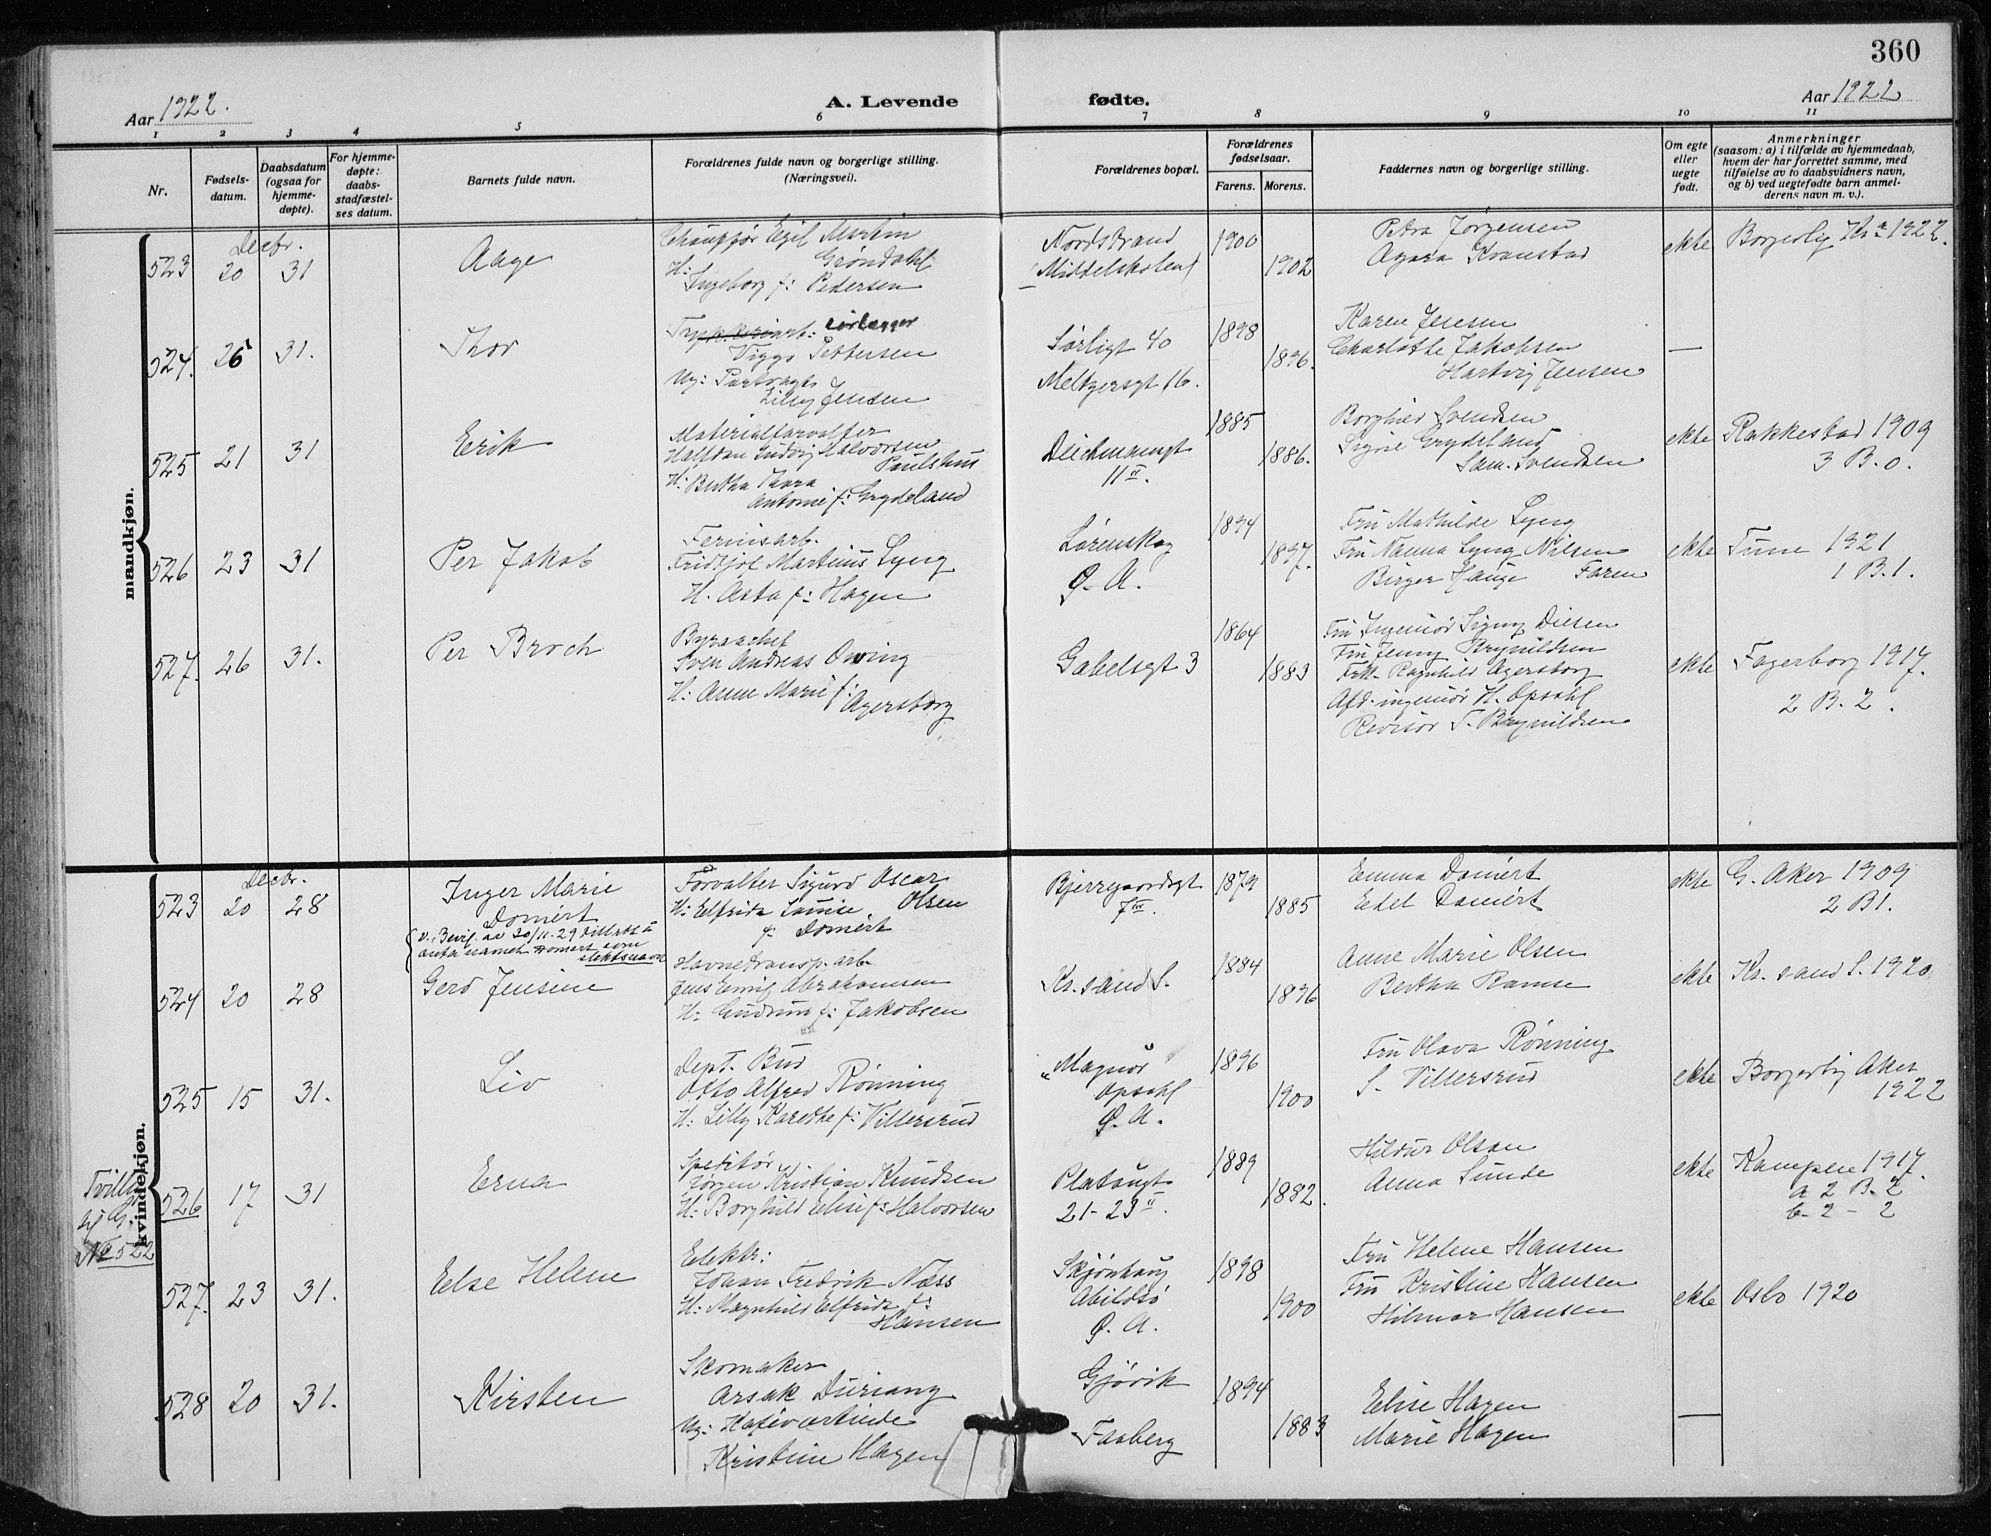 360
Aar 1922.
A. Levende fødte.
Aar 1922
1 2 3 4 5 6 7 8 9 10 11
Nr.
Fødsels-
datum.
Daabsdatum
(ogsaa for
hjemme-
døpte).
For hjemme-
døpte:
daabs-
stadfæstel-
ses datum.
Barnets fulde navn.
Forældrenes fulde navn og borgerlige stilling.
(Næringsvei).
Forældrenes bopæl.
Forældrenes
fødselsaar.
Farens. Morens.
Faddernes navn og borgerlige stilling.
Om egte
eller
uegte
født.
Anmerkninger
(saasom: a) i tilfælde av hjemmedaab,
hvem der har forrettet samme, med
tilføielse av to daabsvidners navn,
og b) ved uegtefødte barn anmel-
derens navn m. v.).
mandkjøn.
Decbr.
523 20 31
Aage
Chauffør Egil Martin
Grøndahl
H: Ingeborg f: Pedersen
Nordstrand
Middelskolen
1900
1902
Petra Jørgensen
Agara
ekte
Borgerlig Kr.a 1922.
524. 26 31.
Thor
Viggo Pettersen
Ug:
Lilly Jensen
Sørligt 40
Meltzersgt 16.
1898
1896.
Karen Jensen
Charlotte Jakobsen
Hartvig Jensen
—
525 21 31
Erik
Materialforvalter
Halfdan Ludvig Halvorsen
Paulshus
H: Bertha Thora
Antonie f: Grydeland
Deichmansgt
11 II.
1885
1886.
Borghild Svendsen
Signe Grydeland
Sam. Svendsen
ekte
Rakkestad 1909
3 B. 0.
526 23 31
Per Jakob
Fernisarb.
Fridtjof Martinus Lyng
H. Asta f: Hagen
Lørenskog
Ø. A.
1894
1897.
Fru Mathilde Lyng
Fru Nanna Lyng Nilsen
Birger Hauge Faren
ekte
Tune 1921
1 B. 1.
527. 26 31.
Per Broch
Byraachef
Sven Andreas Owing
H: Anne Marie f:
Agersborg
Gabelsgt 3
1864
1883
Fru Ingeniør Signy Diesen
Fru Jenny Brynildsen
Frk. Ragnhild Agersborg
Afd. ingeniør H. Opsahl
Revisor T. Brynildsen
ekte
Fagerborg 1917.
2 B. 2.
kvindekjøn.
Decbr.
523 20 28
Inger Marie
Domért
(v. Bevilg. av 30/11. 29 tillatt å
anta navnet Domért som
slektsnavn
Forvalter Sigurd Oscar
Olsen
H: Elfrida Louise
f: Domért
Bjerregaardsgt
7 III.
1879
1885
Emma Domért
Edel Domért
ekte
G. Aker 1909
2 B1.
524 20 28
Gerd Jensine
Havnetransp. arb
Jens Emig Abrahamsen
H: Gudrun f: Jakobsen
Kr.sand S.
1884
1896
Anne Marie Olsen
Bertha Ramse
ekte
Kr. sand S. 1920
525 15 31.
Liv
Dept. Bud
Otto Alfred Rønning
H: Lilly Karethe f: Villersrud
"Magnor"
Opsahl
Ø. A.
1896
1900
Fru Olava Rønning
S. Villersrud
ekte
Borgerlig Aker
1922
Tvilling
af G.
No 522
526 17 31
Erna
Speditør
Jørgen Kristian Knudsen
H: Borghild Elise f: Halvorsen
Platougt
21-23 II.
1889
1882.
Hildur Olsen
Anna Sunde
ekte
Kampen 1917.
a 2 B. 2
b- 2 - 2
527. 23 31.
Else Helene
Elektr:
Johan Fredrik Næss
H: Magnhild Elfrida f:
Hansen
Skjønhaug
Abildsø
Ø. A.
1898
1900
Fru Helene Hansen
Fru Kristine Hansen
Hilmar Hansen
ekte
Oslo 1920
528 20 31.
Kirsten
Skomaker
Arsak Duriang
Ug: Kafévertinde
Kristine Hagen
Gjøvik
Faaberg
1894
1883
Elise Hagen
Marie Hagen
—